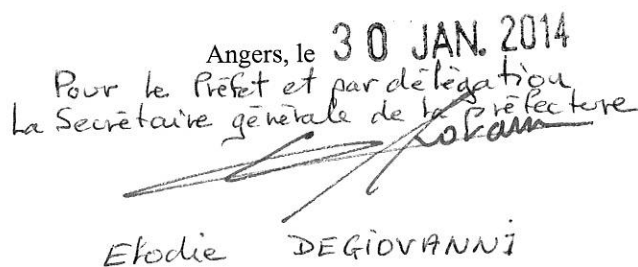 Angers, le 30 JAN. 2014
Pour le Préfet et par délégation
La Secrétaire générale de la préfecture
Elodie DEGIOVANNI